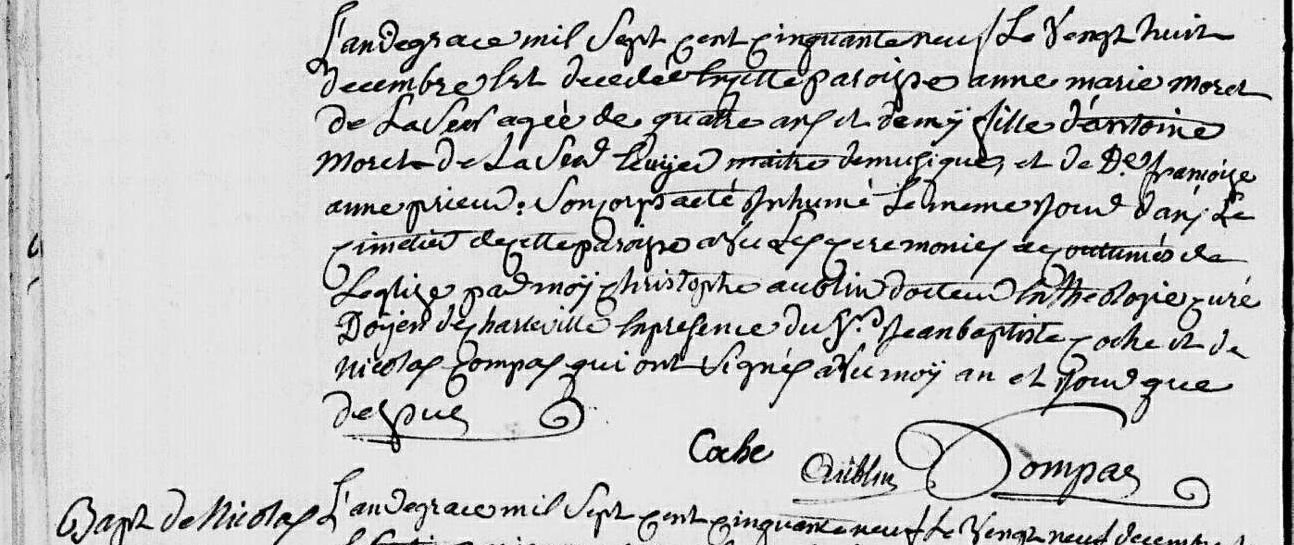 L'an de grace mil sept cent cinquante neuf Le vengt huit
decembre Est decedée En cette paroisse anne marie moret
de La agée de quatre ans et demÿ fille d'antoine
moret de La Ecuyer maitre de musique, et de D.e françoise
anne prieur. Son corps a eté Inhumé Le meme Jour dans Le
cimetier de cette paroisse avec Les ceremonies accoutumés de
L'eglise par moÿ christophe aublin docteur En theologie curé
Doyen de charleville En presence du S.r Jean baptiste coche et de
Nicolas compas qui ont signés avec moÿ an et Jour que
dessus
Coche
Aüblin
Compas
Bapt de Nicolas
L'an de grace mil sept cent cinquante neuf Le Vengt neuf decembre